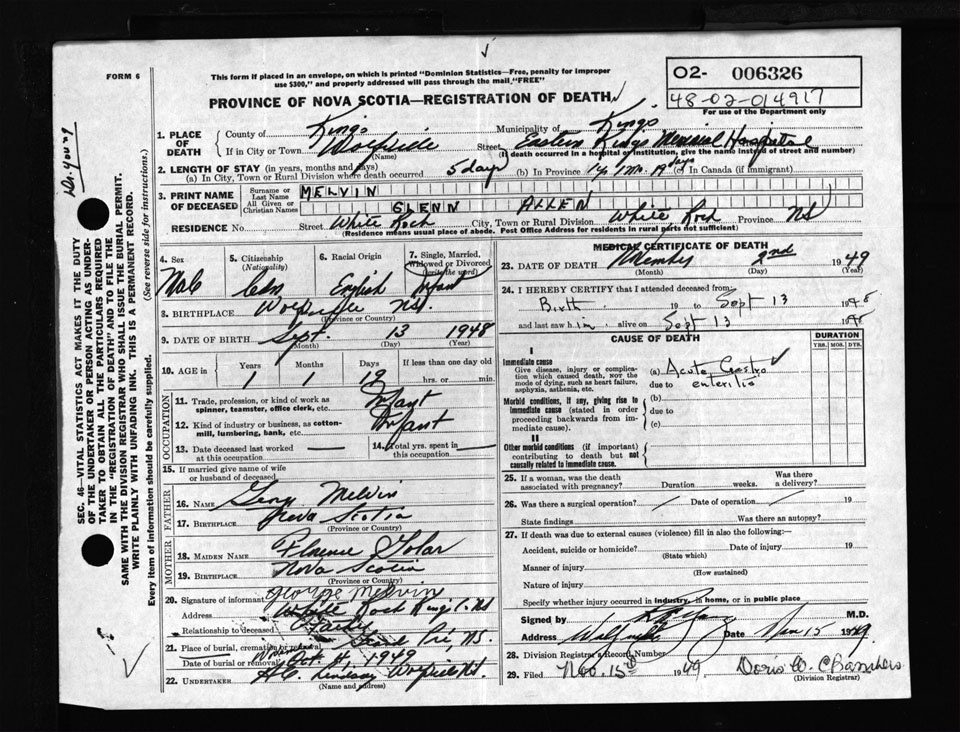 FORM 6
This form if placed in an envelope, on which is printed "Dominion Statistics—Free, penalty for improper
use $300," and properly addressed will pass through the mail, "FREE"
O2- 006326
48-02-014917
For use of the Department only
PROVINCE OF NOVA SCOTIA—REGISTRATION OF DEATH
1. PLACE OF DEATH
County of Kings Municipality of Kings
If in City or Town Wolfville Street Eastern Kings Memorial Hospital
(Name) (If death occurred in a hospital or institution, give the name instead of street and number)
2. LENGTH OF STAY (in years, months and days)
(a) In City, Town or Rural Division where death occurred 5 days (b) In Province 1 yr 1 mo. 19 days (c) In Canada (if immigrant)
3. PRINT NAME OF DECEASED
Surname or Last Name MELVIN
All Given or Christian Names GLENN ALLEN
RESIDENCE No. Street White Rock City, Town or Rural Division White Rock Province NS
(Residence means usual place of abode. Post Office Address for residents in rural parts not sufficient)
4. Sex Male
5. Citizenship (Nationality) Cdn
6. Racial Origin English
7. Single, Married, Widowed or Divorced (write the word) Infant
8. BIRTHPLACE Wolfville NS.
(Province or Country)
9. DATE OF BIRTH Sept. 13 1948
(Month) (Day) (Year)
10. AGE in Years Months Days If less than one day old
1 1 19 hrs. or min.
OCCUPATION
11. Trade, profession or kind of work as spinner, teamster, office clerk, etc. Infant
12. Kind of industry or business, as cotton-mill, lumbering, bank, etc. Infant
13. Date deceased last worked at this occupation
14. Total yrs. spent in this occupation
15. If married give name of wife or husband of deceased
FATHER
16. NAME Melvin
17. BIRTHPLACE Nova Scotia
(Province or Country)
MOTHER
18. MAIDEN NAME Florence
19. BIRTHPLACE Nova Scotia
(Province or Country)
20. Signature of informant George Melvin
Address White Rock Kings Co. NS
Relationship to deceased
21. Place of burial, cremation or removal Grand Pré, N.S.
Date of burial or removal Nov. 4, 1949
22. UNDERTAKER H.C. Lindsay Wolfville N.S.
(Name and address)
MEDICAL CERTIFICATE OF DEATH
23. DATE OF DEATH November 2nd 1949
(Month) (Day) (Year)
24. I HEREBY CERTIFY that I attended deceased from
Birth 19 to Sept 13 1948
and last saw him alive on Sept 13 1948
CAUSE OF DEATH
DURATION
YRS. MOS. DYS.
I
Immediate cause
Give disease, injury or complication which caused death, NOT the mode of dying, such as heart failure, asphyxia, asthenia, etc.
(a) Acute Gastro
due to enteritis
Morbid conditions, if any, giving rise to immediate cause (stated in order proceeding backwards from immediate cause).
(b)
due to
(c)
II
Other morbid conditions (if important) contributing to death but not causally related to immediate cause.
25. If a woman, was the death associated with pregnancy? Duration weeks. Was there a delivery?
26. Was there a surgical operation? Date of operation 19
State findings Was there an autopsy?
27. If death was due to external causes (violence) fill in also the following:—
Accident, suicide or homicide? Date of injury 19
(State which)
Manner of injury
(How sustained)
Nature of injury
Specify whether injury occurred in industry, in home, or in public place
Signed by M.D.
Address Wolfville Date Nov 15 1949
28. Division Registrar's Record Number
29. Filed Nov. 15th 1949 Doris W.
(Division Registrar)
SEC. 46—VITAL STATISTICS ACT MAKES IT THE DUTY
OF THE UNDERTAKER OR PERSON ACTING AS UNDER-
TAKER TO OBTAIN ALL THE PARTICULARS REQUIRED
IN THE "REGISTRATION OF DEATH" AND TO FILE THE
SAME WITH THE DIVISION REGISTRAR WHO SHALL ISSUE THE BURIAL PERMIT.
WRITE PLAINLY WITH UNFADING INK. THIS IS A PERMANENT RECORD.
Every item of information should be carefully supplied. (See reverse side for instructions.)